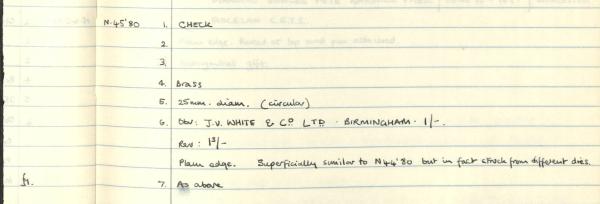 N.45'80 1. CHECK
2.
3.
4. Brass
5. 25mm. diam. (circular)
6. Obv: J.V. WHITE & Co LTD · BIRMINGHAM · 1/-.
Rev: 1s/-
Plain edge. Superficially similar to N44'80 but in fact struck from different dies.
7. As above